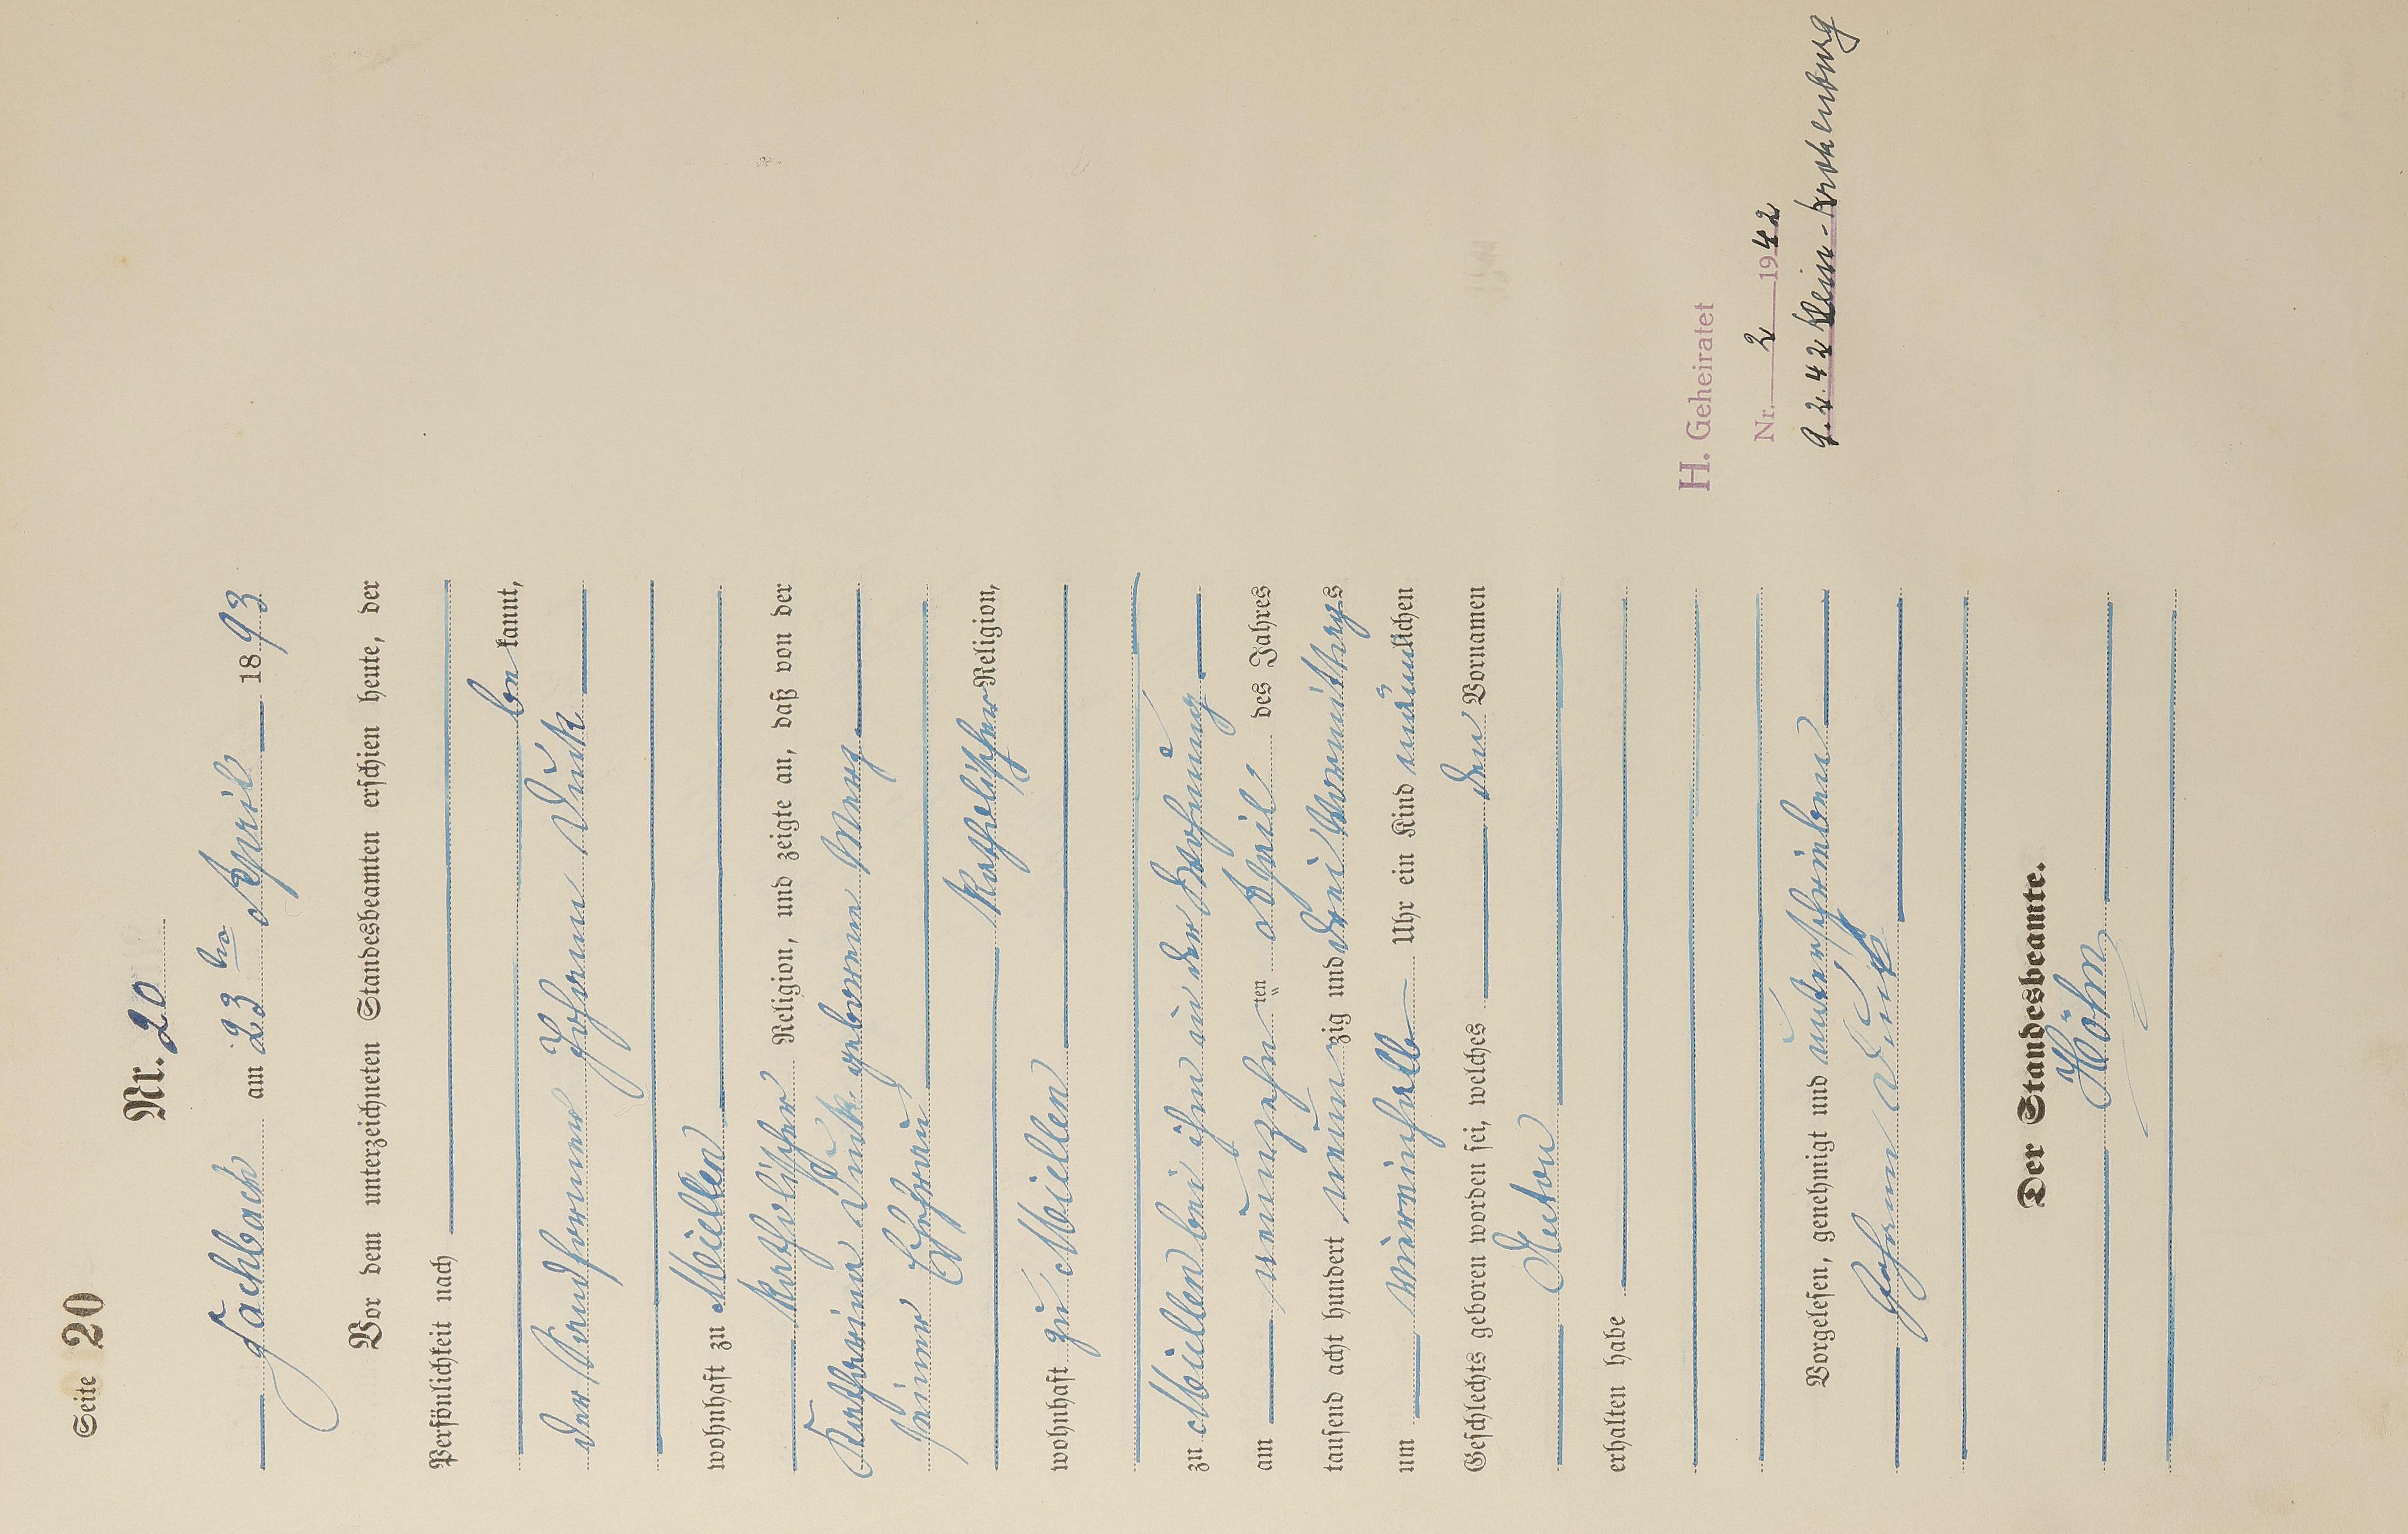 Seite 20
Nr. 20
Fachbach am 23ten April 1893
Vor dem unterzeichneten Standesbeamten erschien heute, der
Persönlichkeit nach
bekannt,
der Johann Linck
wohnhaft zu Miellen
katholischer Religion, und zeigte an, daß von der
Katharina Linck geborene Merz
seiner Ehefrau
katholischer Religion,
wohnhaft zu Miellen
zu Miellen bei ihm in der Wohnung
am neunzehnten April des Jahres
tausend acht hundert neunzig und drei Vormittags
um Uhr ein Kind männlichen
Geschlechts geboren worden sei, welches den Vornamen
Anton
erhalten habe
Vorgelesen, genehmigt und unterschrieben
Johann Linck
Der Standesbeamte.
Höhn
H. Geheiratet
Nr. 2 1942
9.2.42 Klein-Krotzenburg